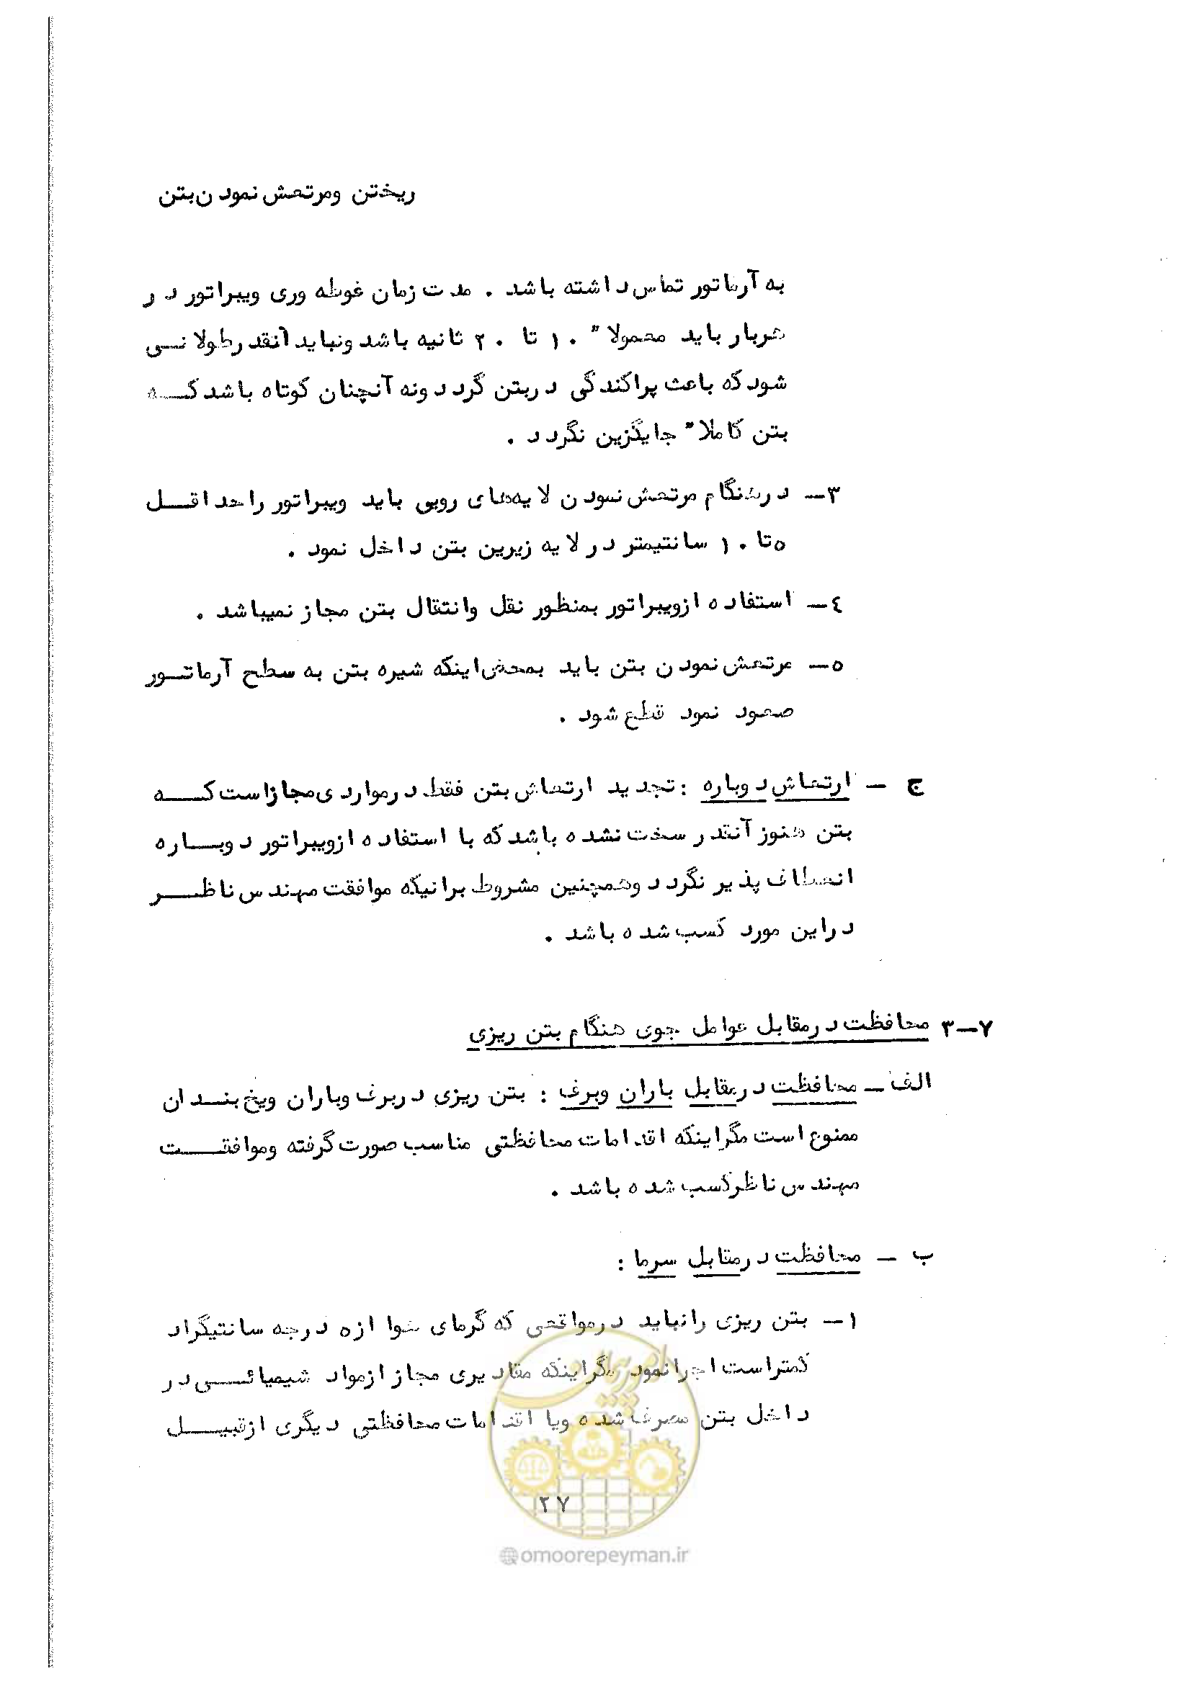 ریختن ومرتعش نمودن بتن
به آرماتور تماس داشته باشد . مدت زمان غوطه وری ویبراتور در
هربار باید معمولا" ۱۰ تا ۲۰ ثانیه باشد ونباید آنقدر طولانی
شود که باعث پراکندگی دربتن گردد ونه آنچنان کوتاه باشد که
بتن کاملا" جایگزین نگردد .
۳- درهنگام مرتعش نمودن لایه‌های رویی باید ویبراتور را حداقل
۵ تا ۱۰ سانتیمتر در لایه زیرین بتن داخل نمود .
۴- استفاده ازویبراتور بمنظور نقل وانتقال بتن مجاز نمیباشد .
۵- مرتعش نمودن بتن باید بمحض اینکه شیره بتن به سطح آرماتور
صعود نمود قطع شود .
ج - ارتعاش دوباره : تجدید ارتعاش بتن فقط درمواردی مجاز است که
بتن هنوز آنقدر سخت نشده باشد که با استفاده ازویبراتور دوباره
انعطاف پذیر نگردد وهمچنین مشروط برانیکه موافقت مهندس ناظر
دراین مورد کسب شده باشد .
۳-۷ محافظت درمقابل عوامل جوی هنگام بتن ریزی
الف - محافظت درمقابل باران وبرف : بتن ریزی دربرف وباران ویخ بندان
ممنوع است مگراینکه اقدامات محافظتی مناسب صورت گرفته وموافقت
مهندس ناظرکسب شده باشد .
ب - محافظت درمقابل سرما :
۱- بتن ریزی رانباید درمواقعی که گرمای هوا از ۵ درجه سانتیگراد
کمتراست اجرانمود مگراینکه مقادیری مجاز ازمواد شیمیائی در
داخل بتن مصرف شده ویا اقدامات محافظتی دیگری ازقبیل
امور پیمان
۲۷
@omoorepeyman.ir